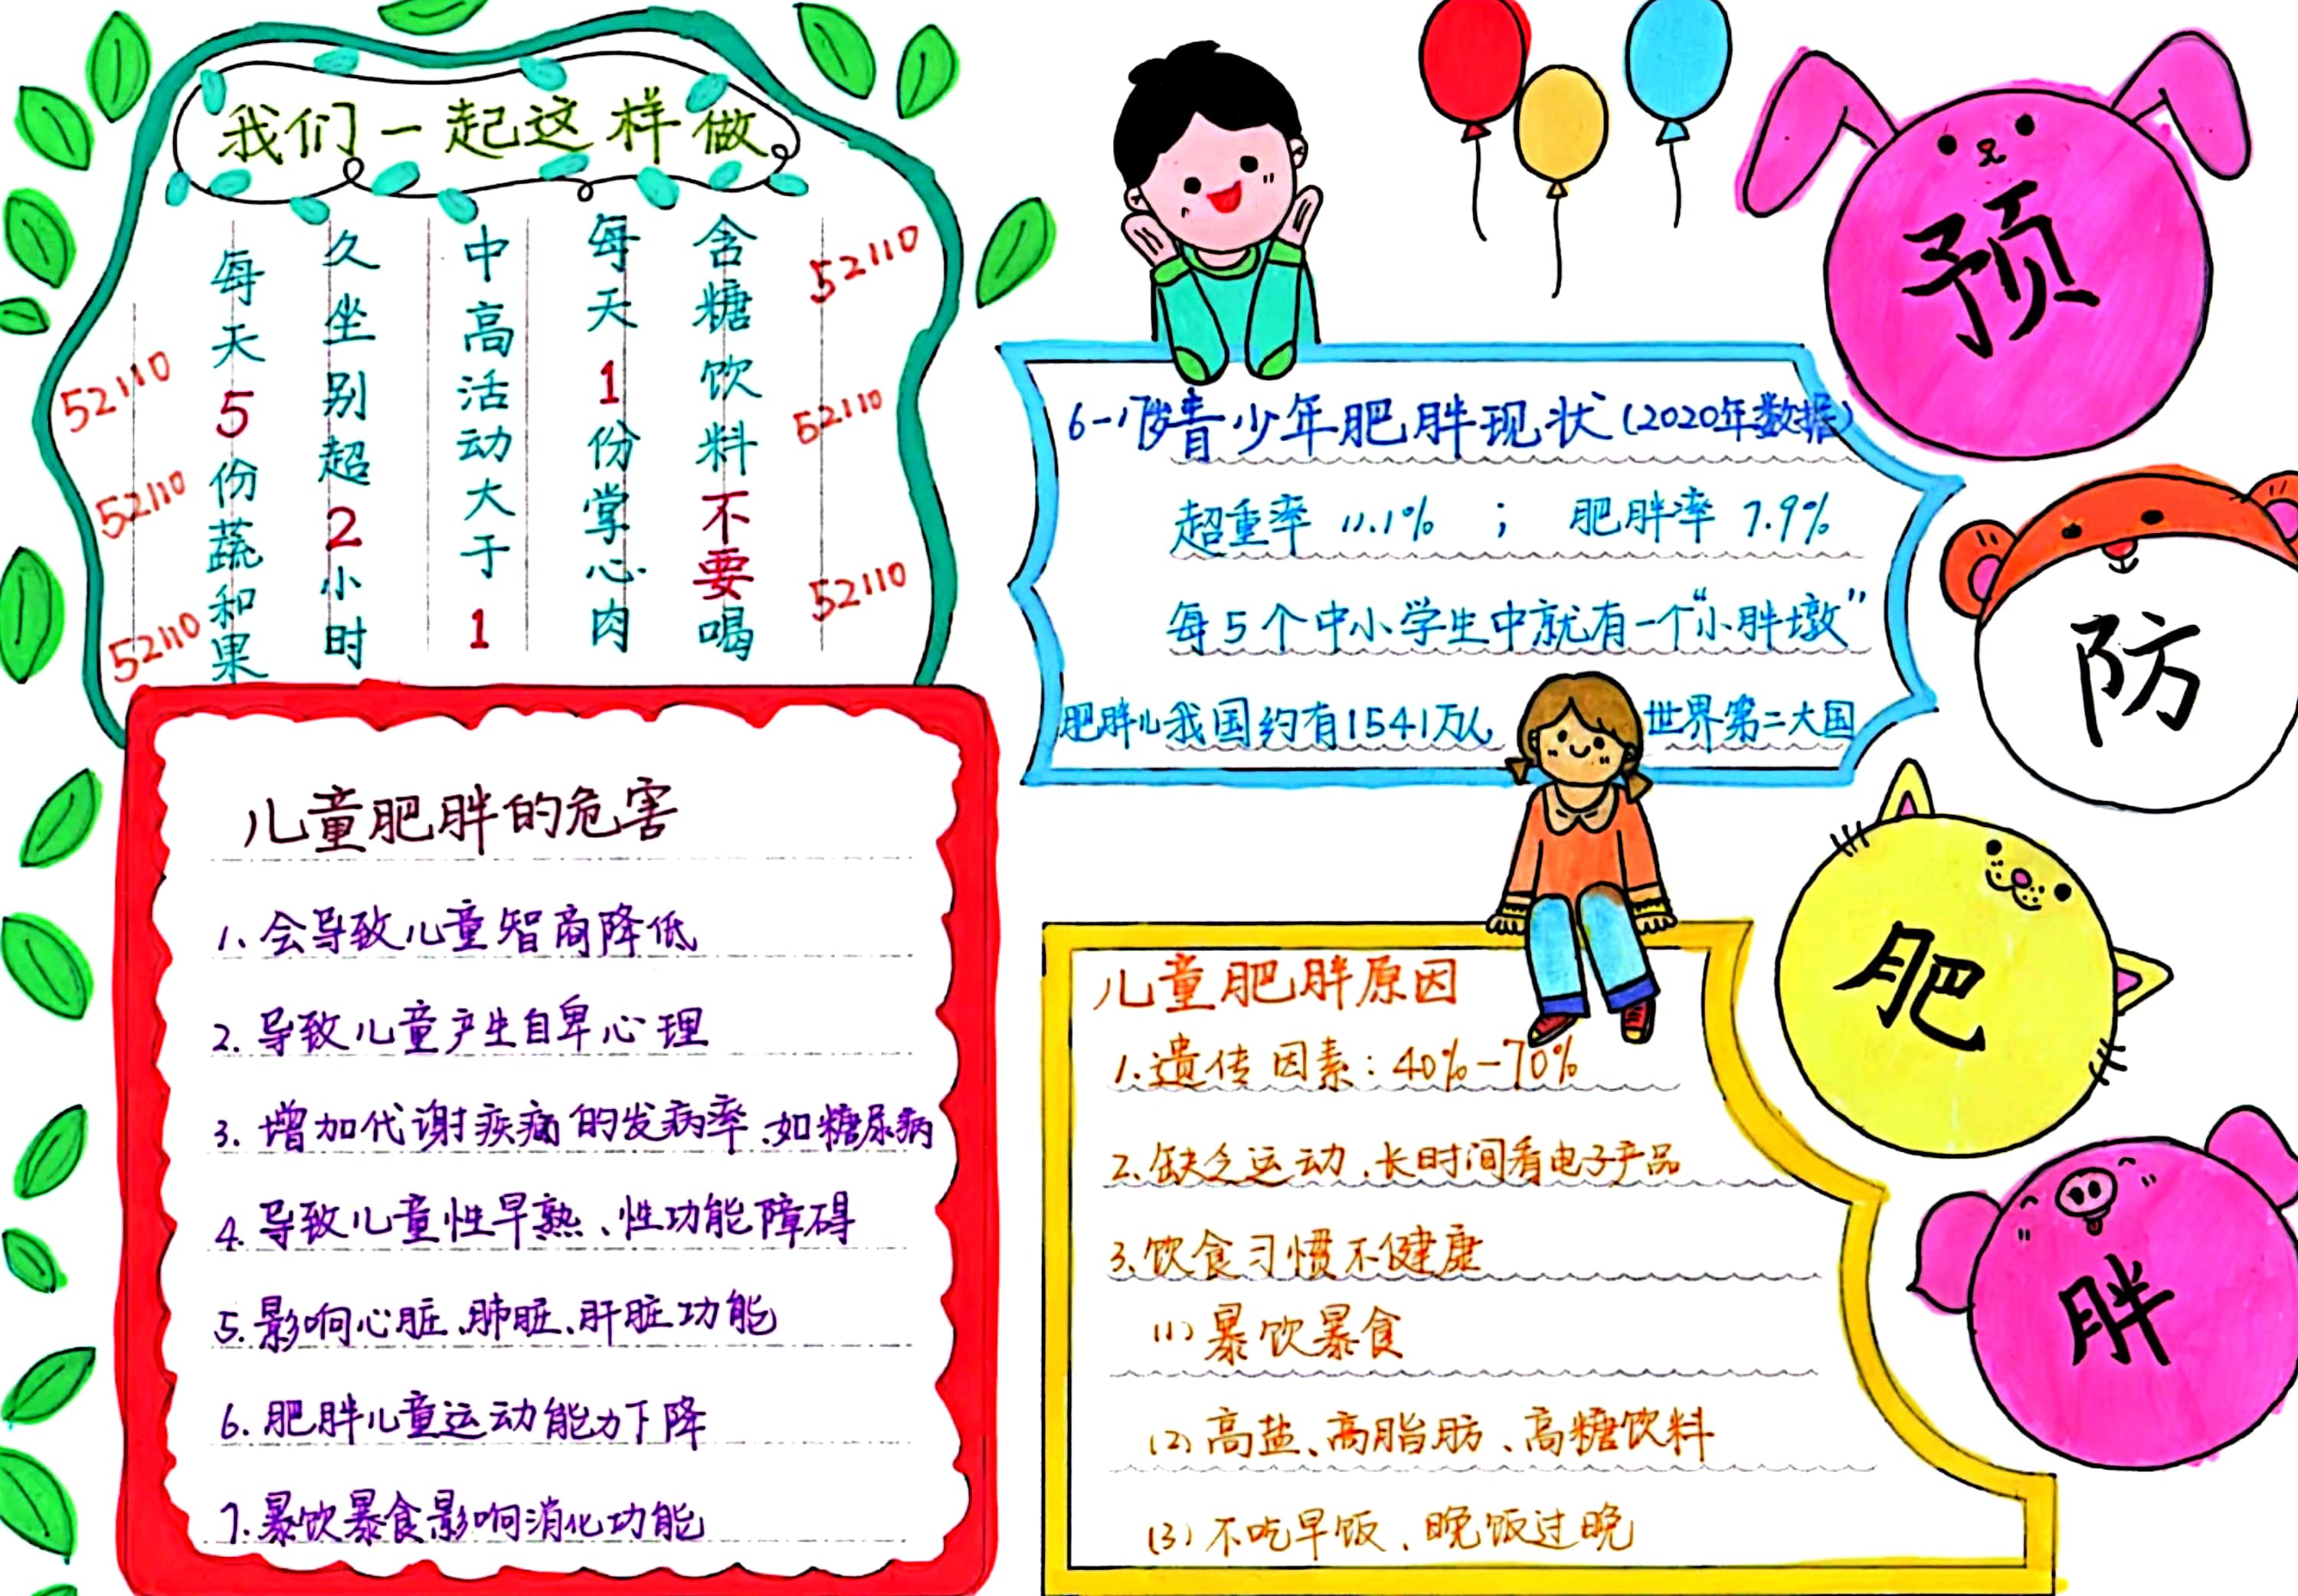 我们一起这样做
每天5份蔬和果
久坐别超2小时
中高活动大于1
每天1份掌心肉
含糖饮料不要喝
52110
52110
52110
52110
52110
52110
青少年肥胖现状(2020年数据)
超重率 11.1% ； 肥胖率 7.9%
每5个中小学生中就有一个“小胖墩”
肥胖儿我国约有1541万人 世界第二大国
预
防
肥
胖
儿童肥胖的危害
1、会导致儿童智商降低
2. 导致儿童产生自卑心理
3. 增加代谢疾病的发病率、如糖尿病
4. 导致儿童性早熟、性功能障碍
5. 影响心脏、肺脏、肝脏功能
6. 肥胖儿童运动能力下降
7. 暴饮暴食影响消化功能
儿童肥胖原因
1. 遗传因素：40%-70%
2. 缺乏运动、长时间看电子产品
3、饮食习惯不健康
(1) 暴饮暴食
(2) 高盐、高脂肪、高糖饮料
(3) 不吃早饭、晚饭过晚